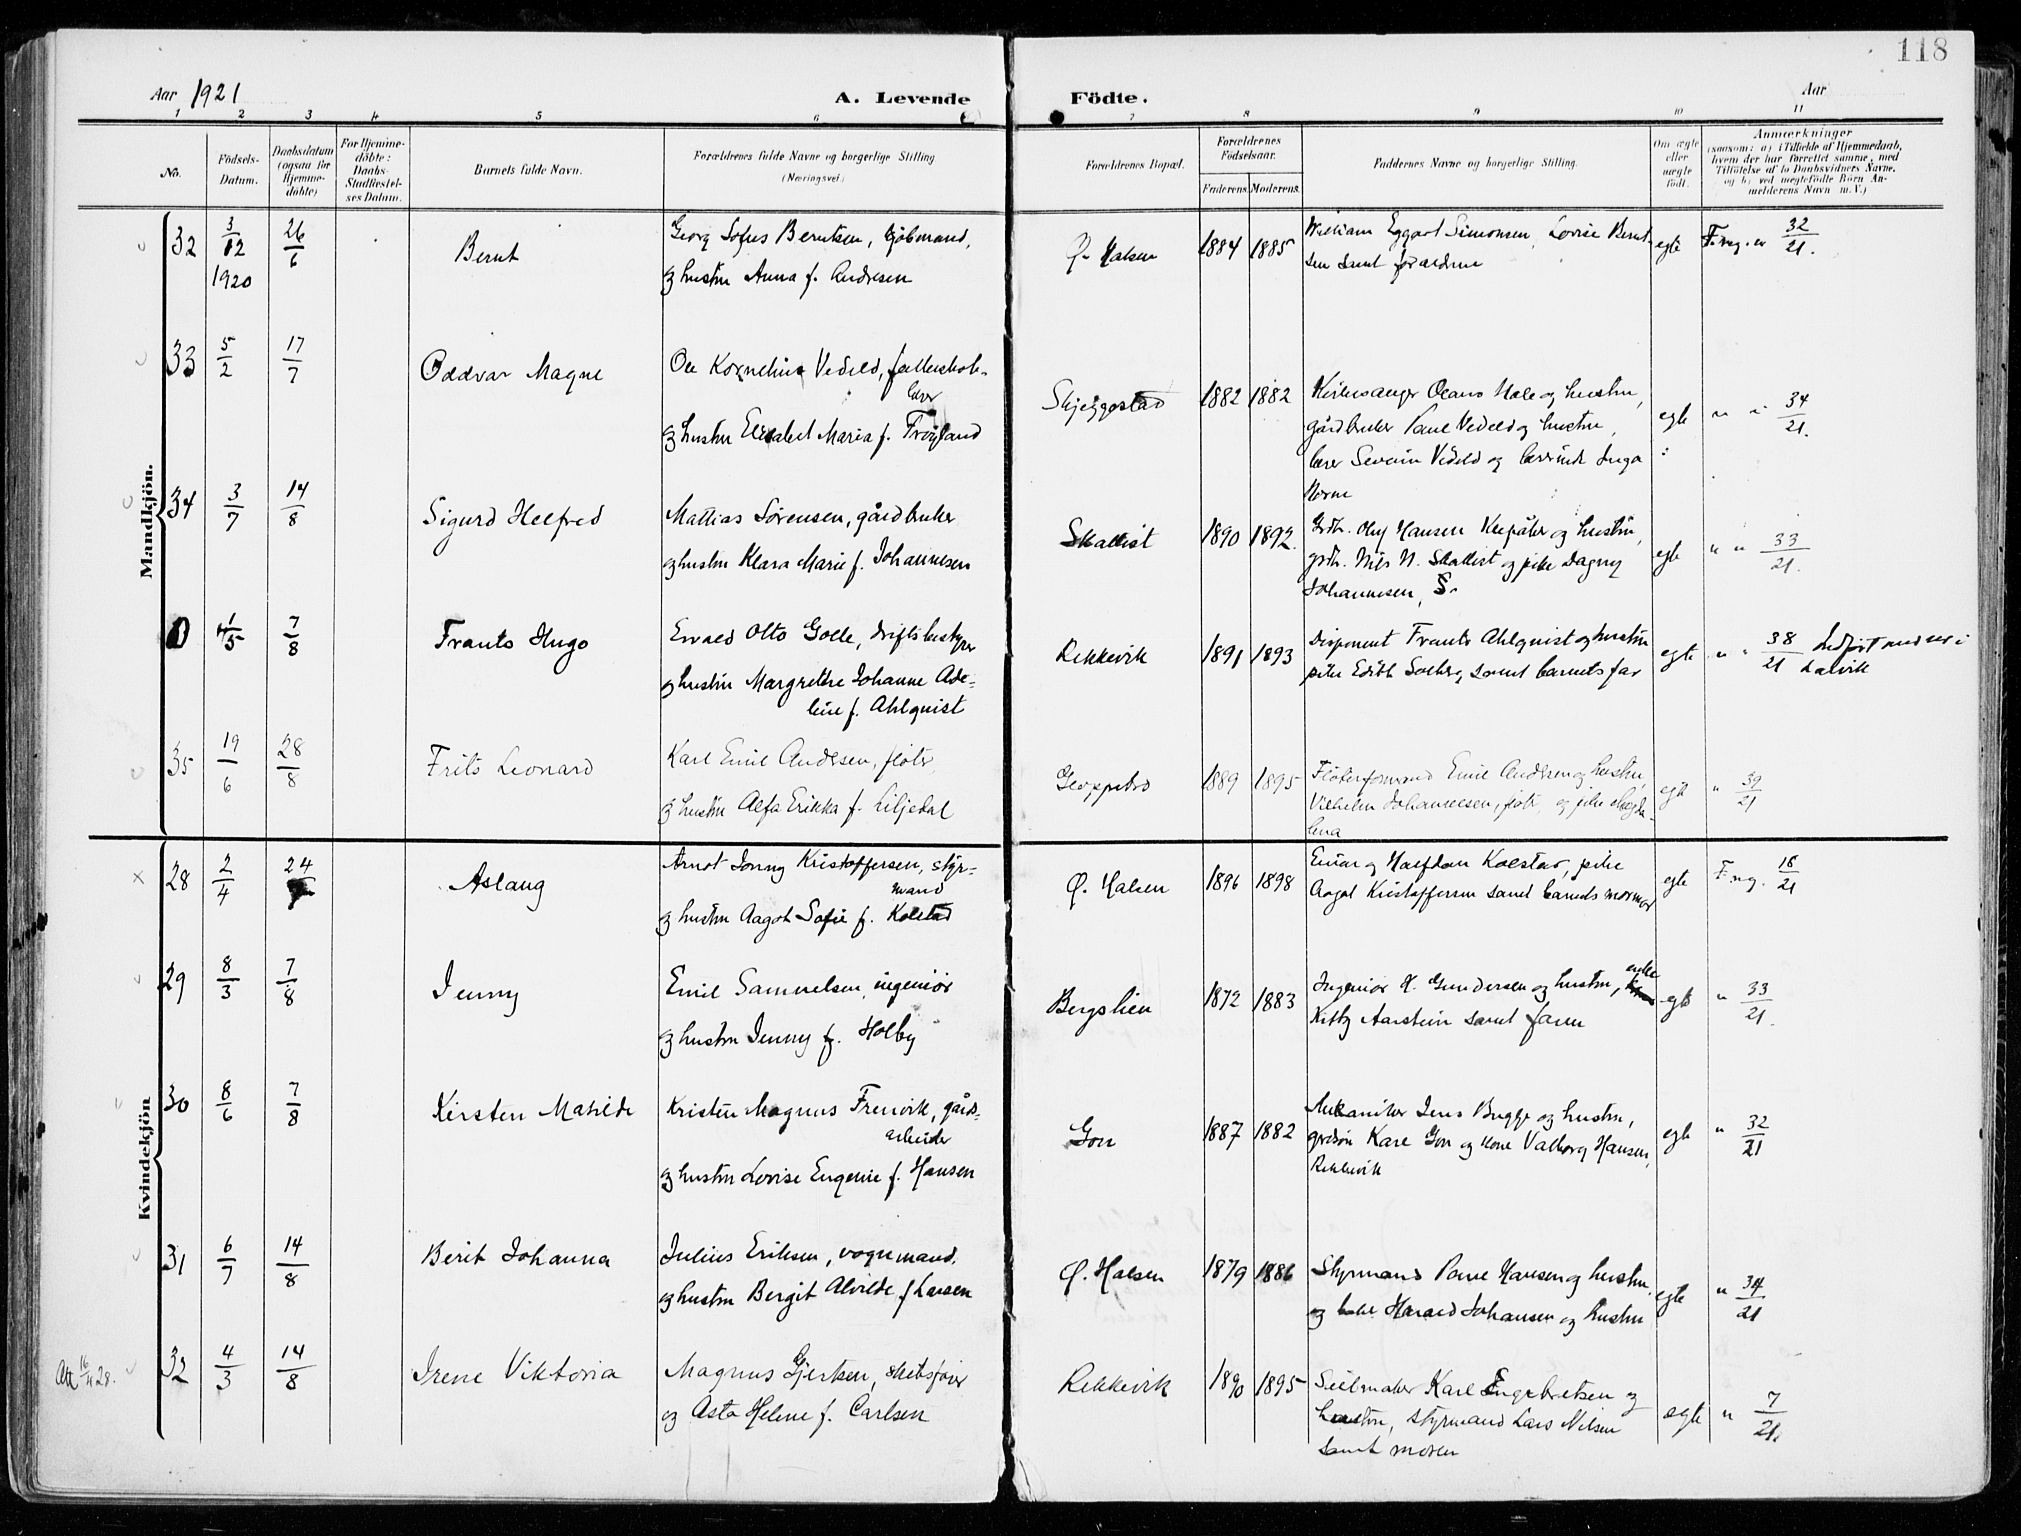 118
Aar 1921
A. Levende Födte.
Aar
1 2 3 4 5 6 7 8 9 10 11
No.
Födsels-Datum.
Daabsdatum (ogsaa for Hjemme-döbte)
For Hjemme-döbte: Daabs-Stadfæstel-ses Datum.
Barnets fulde Navn.
Forældrenes fulde Navne og borgerlige Stilling
(Næringsvei.)
Forældrenes Bopæl.
Forældrenes Fødselsaar.
Faderens. Moderens.
Faddernes Navne og borgerlige Stilling.
Om ægte eller uægte født.
Anmærkninger
(saasom: a) i Tilfælde af Hjemmedaab,
hvem der har forrettet samme, med
Tilföielse af to Daabsvidners Navne.
og b) ved uægtefödte Börn An-
melderens Navn m. V.)
Mandkjön.
32 3/12 1920 26/6 Bernt
Georg Sofus Berntsen, kjöbmand,
og hustru Anna f. Andresen
Ø. Halsen 1884 1885
William Eggart Simonsen, Lovise Bernt-
sen samt forældrene
egte F. ng. n 32/21.
33 5/2 17/7 Oddvar Magne
Ole Kornelius Vedeld, folkeskole-
lærer
og hustru Elisabet Maria f. Tröyland
Skjeggestad 1882 1882
Kirkesanger Olaus Hole og hustru,
gårdbruker Paul Vedeld og hustru,
lærer Severin Vedeld og lærerinde Inga
Horne
egte " " 34/21.
34 3/7 14/8 Sigurd Helfred
Mattias Sørensen, gårdbruker
og hustru Klara Marie f. Johannesen
Skallist 1890 1892.
Grdbr. Oluf Hansen og hustru,
grdbr. Nils N. Skallist og pike Dagny
Johannesen, S.
egte " " 33/21.
0 1/5 7/8 Frants Hugo
Evald Otto Golle, driftsbestyrer
og hustru Margrethe Johanne Ade-
line f. Ahlquist
Rekkevik 1891 1893
Disponent Frants Ahlquist og hustru
pike Edith Solberg samt barnets far
egte " " 38/21 Indført under i
Larvik
35 19/6 28/8 Frits Leonard
Karl Emil Andersen, fløter,
og hustru Alfa Erikka f. Liljedal
Gloppebo 1889 1895
Fløterformand Emil Andersen og hustru,
Vilhelm Johannessen, fløter, og pike Magda-
lena
egte " 39/21
Kvindekjön
28 2/4 24/7 Aslaug
Arnot Jonny Kristoffersen, styr-
mand
og hustru Aagot Sofie f. Kolstad
Ø. Halsen 1896 1898
Einar og Halfdan Kolstad, pike
Aagot Kristoffersen samt barnets mormor
egte F. ng. 18/21
29 8/3 7/8 Jenny
Emil Samuelsen, ingeniör
og hustru Jenny f. Holby
Bergslien 1872 1883
Ingeniör H. Gundersen og hustru, enke
Kitty Aarstein samt faren
egte " 33/21.
30 8/6 7/8 Kirsten Matilde
Kristen Magnus Frenvik, gårds-
arbeider
og hustru Lovise Eugenie f. Hansen
Gon 1887 1882
Mekaniker Jens Bugge og hustru,
grdsön Karl Gon og kone Valborg Hansen,
Rekkevik
egte " 32/21
31 6/7 14/8 Berit Johanna
Julius Eriksen, vognmand,
og hustru Bergit Alvilde f. Larsen
Ø. Halsen 1879 1886
Styrmand Paul Hansen og hustru,
og Harald Johansen og hustru
egte " 34/21
Att 16/4 28.
32 4/3 14/8 Irene Viktoria
Magnus Gjertsen, skibsfører
og Asta Helene f. Carlsen
Rekkevik 1890 1895
Seilmaker Karl Engebretsen og
hustru, styrmand Lars Nilsen
samt moren
ægte " 7/21.